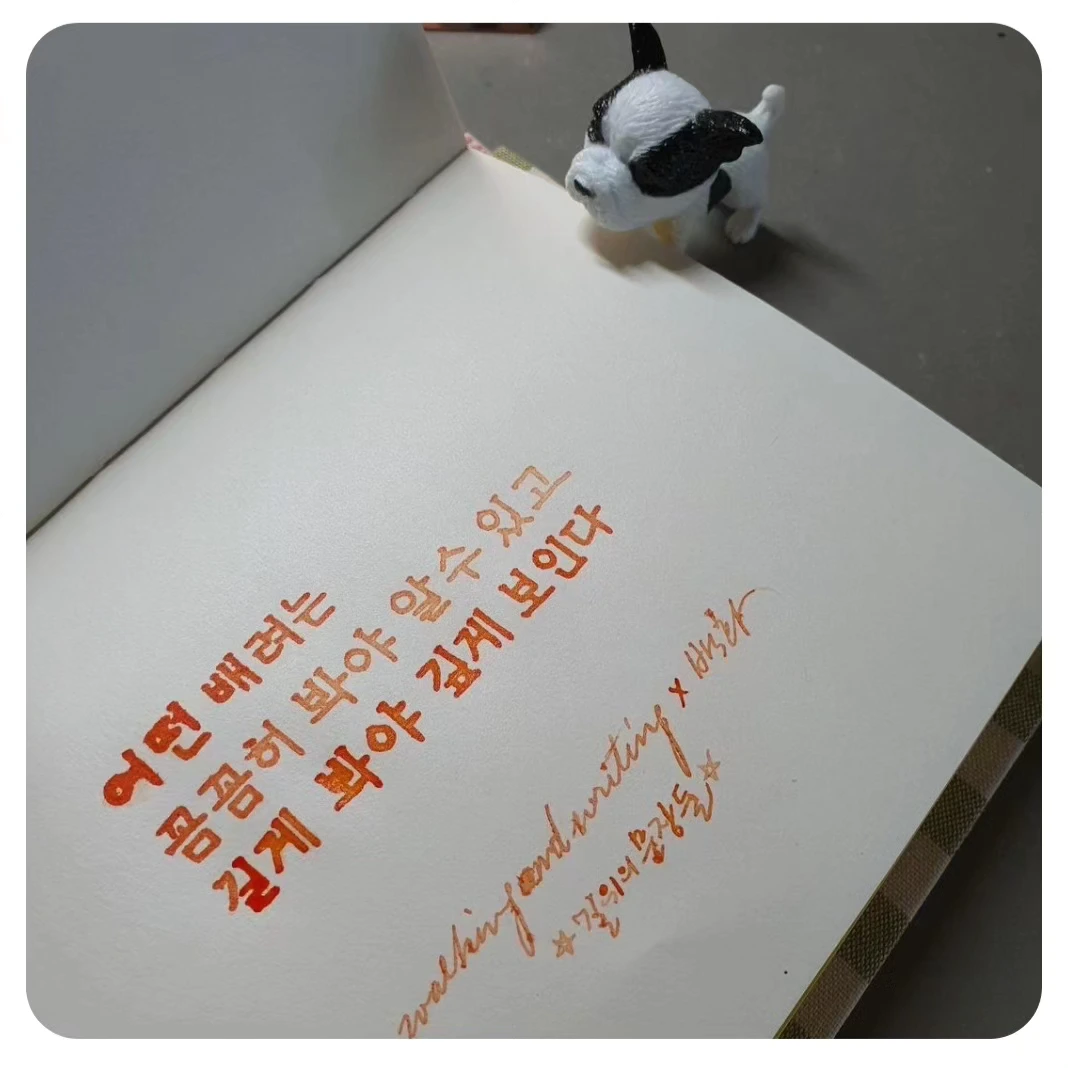 어떤 배려는
꼼꼼히 봐야 알수 있고
길게 봐야 깊게 보인다
walking and writing x
☆길위의 문장들☆